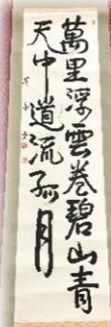 萬里浮雲卷碧山青
天中道流孤月